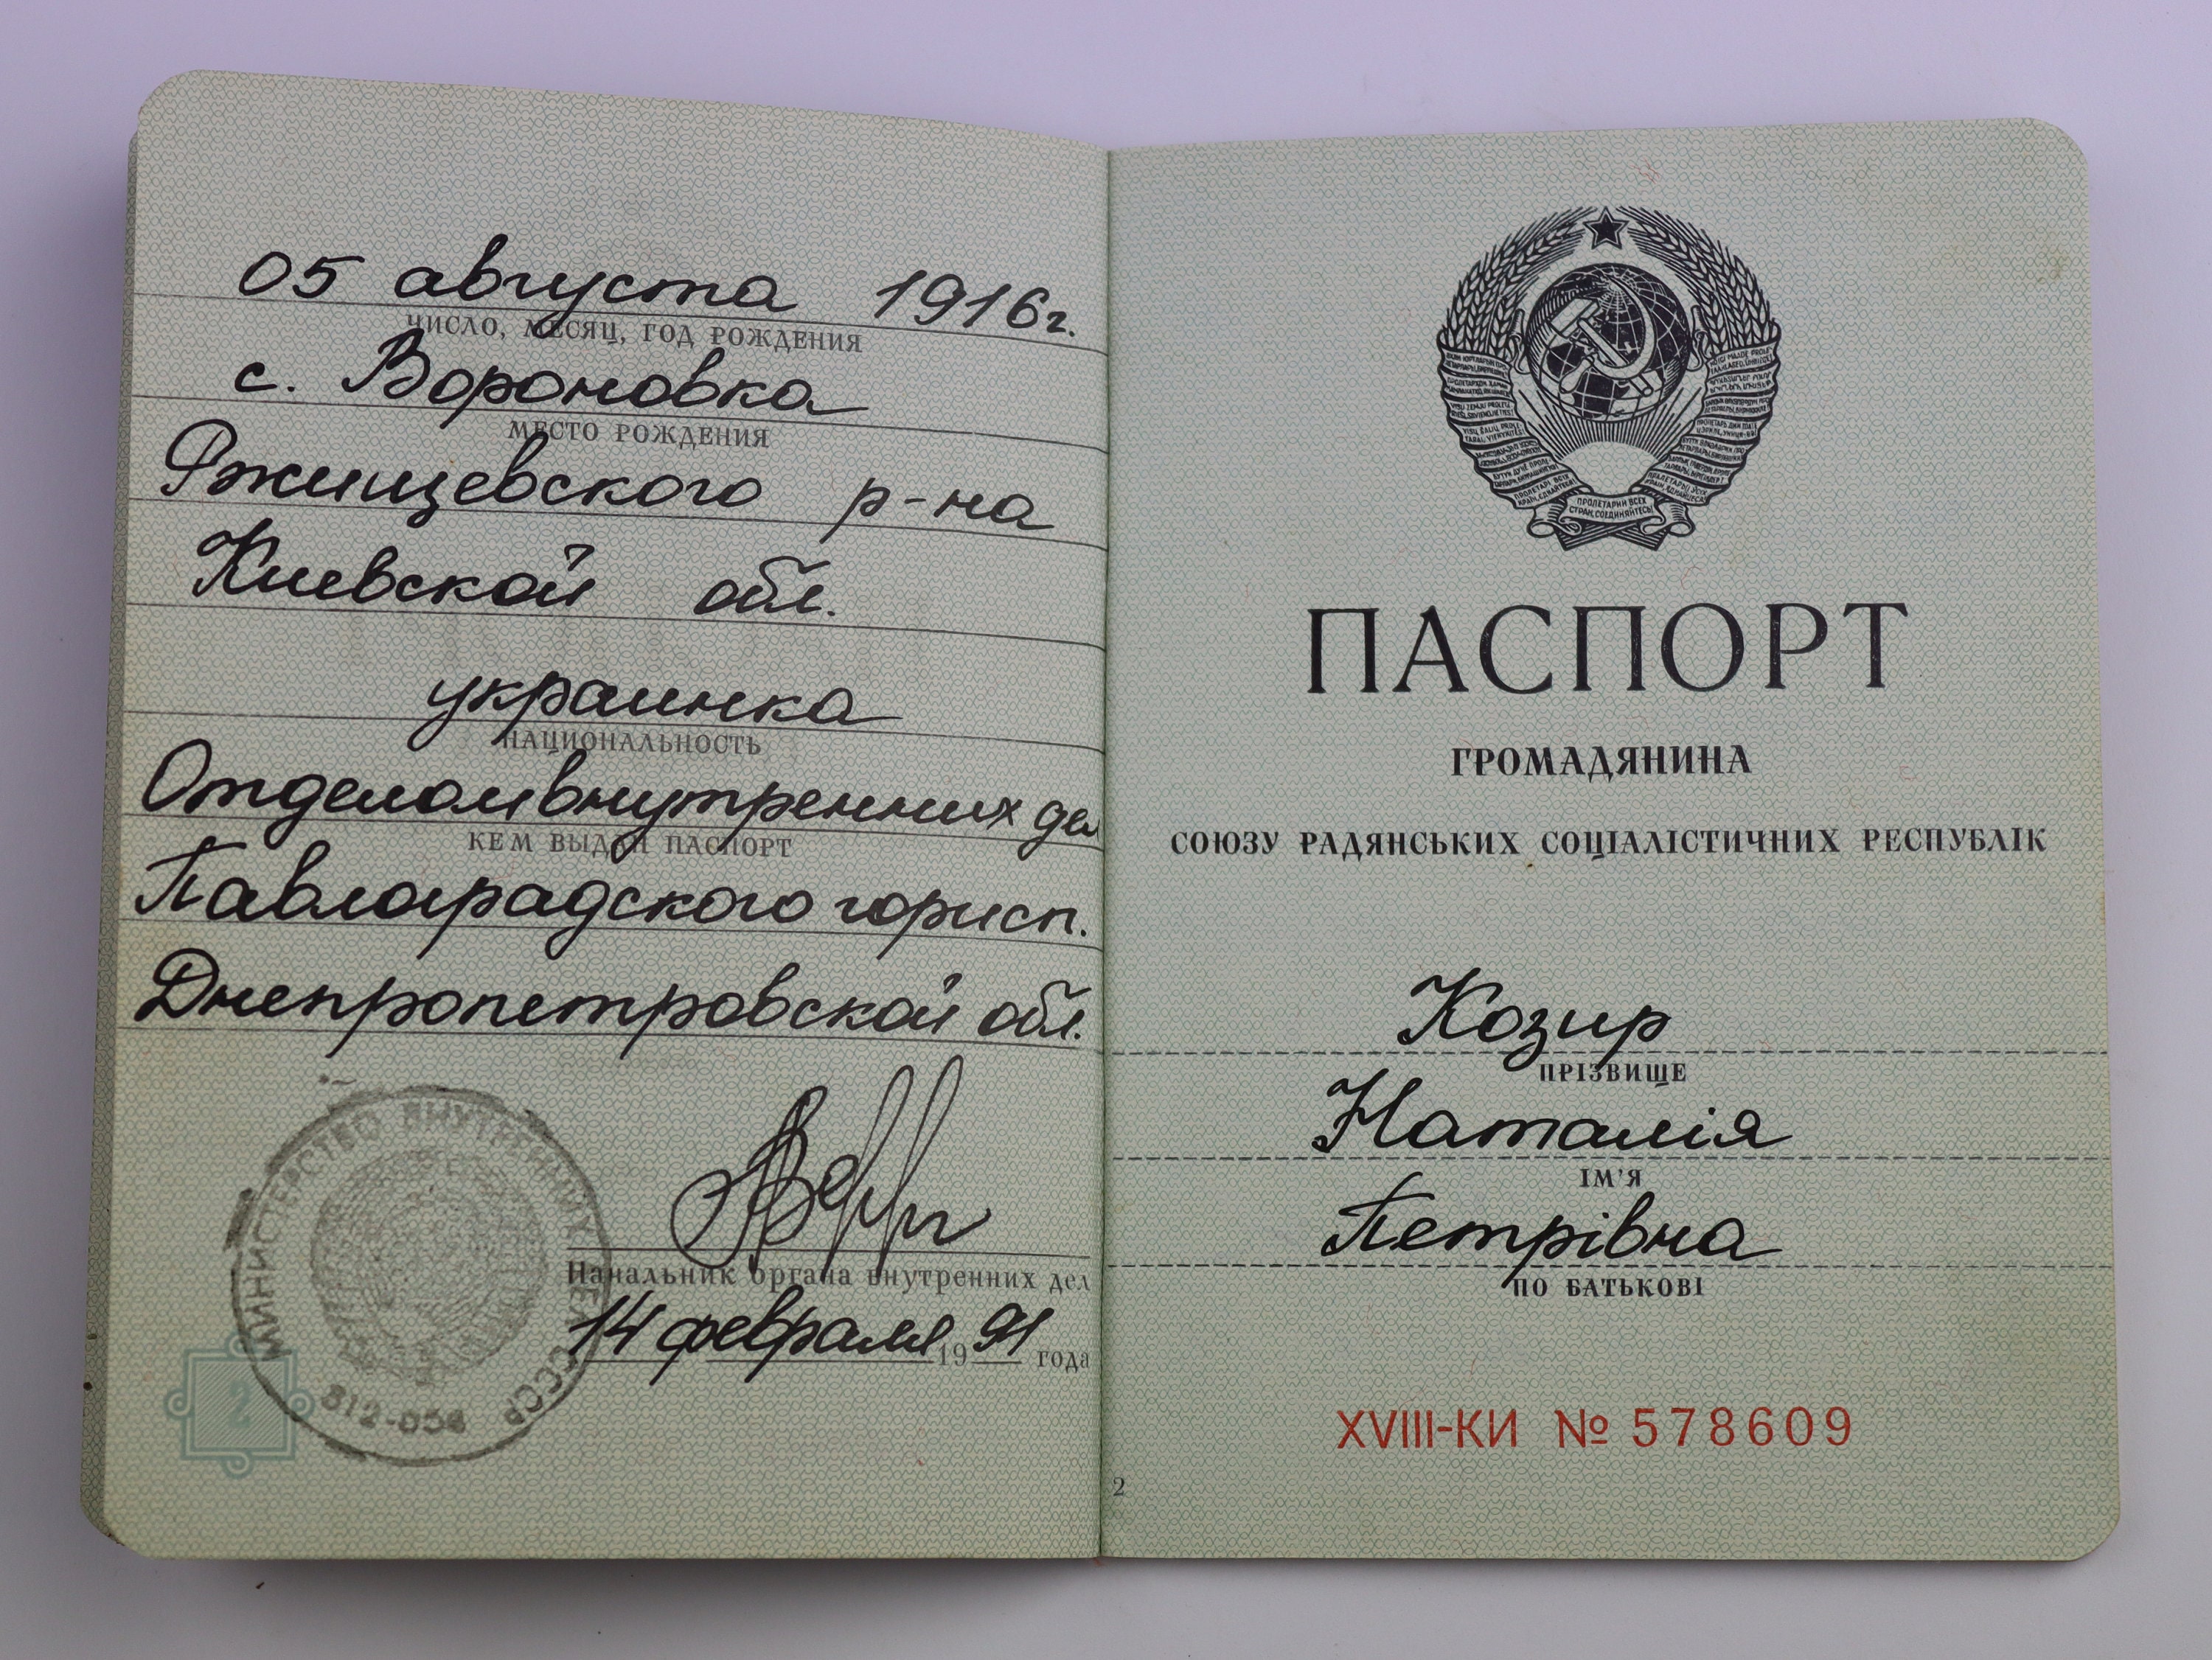 05 августа 1916г.
ЧИСЛО, МЕСЯЦ, ГОД РОЖДЕНИЯ
с. Вороновка
МЕСТО РОЖДЕНИЯ
Ржищевского р-на
Киевской обл.
украинка
НАЦИОНАЛЬНОСТЬ
Отделом внутренних дел
КЕМ ВЫДАН ПАСПОРТ
Павлоградского горисп.
Днепропетровской обл.
МИНИСТЕРСТВО ВНУТРЕННИХ ДЕЛ СССР
Начальник органа внутренних дел
14 февраля 1991 года
2
ПАСПОРТ
ГРОМАДЯНИНА
СОЮЗУ РАДЯНСЬКИХ СОЦІАЛІСТИЧНИХ РЕСПУБЛІК
Козир
ПРІЗВИЩЕ
Наталія
ІМ'Я
Петрівна
ПО БАТЬКОВІ
XVIII-КИ № 578609
2